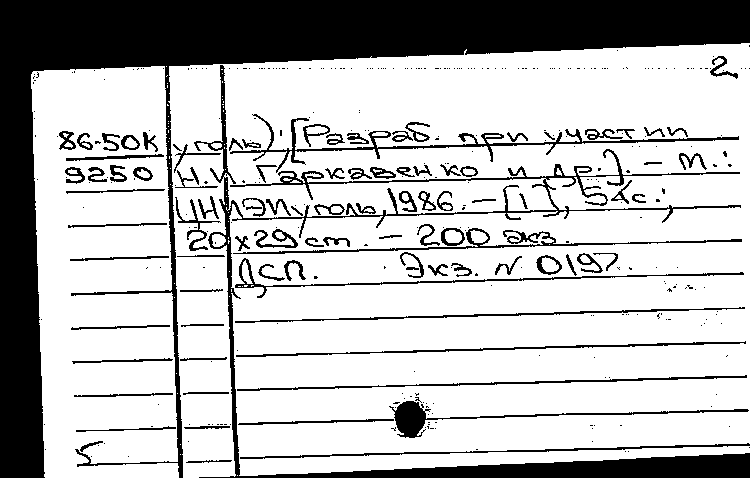 2
86-50К уголь); [Разраб. при участии
9250 Н.И. Гаркавенко и др.]. – М.:
ЦНИЭИуголь, 1986. – [1], 54с.;
20х29 см. – 200 экз.
ДСП. Экз. N 0197.
5